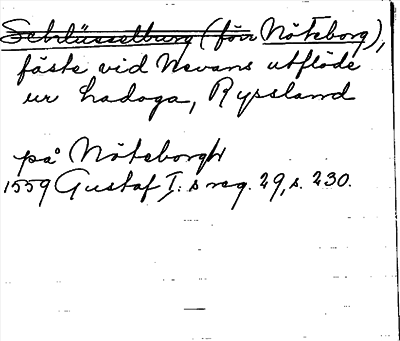 Schlüsselburg (förr Nöteborg),
fäste vid Nevans utflöde
ur Ladoga, Ryssland
på Nöteborgh
1559 Gustaf I:s reg. 29, s. 230.